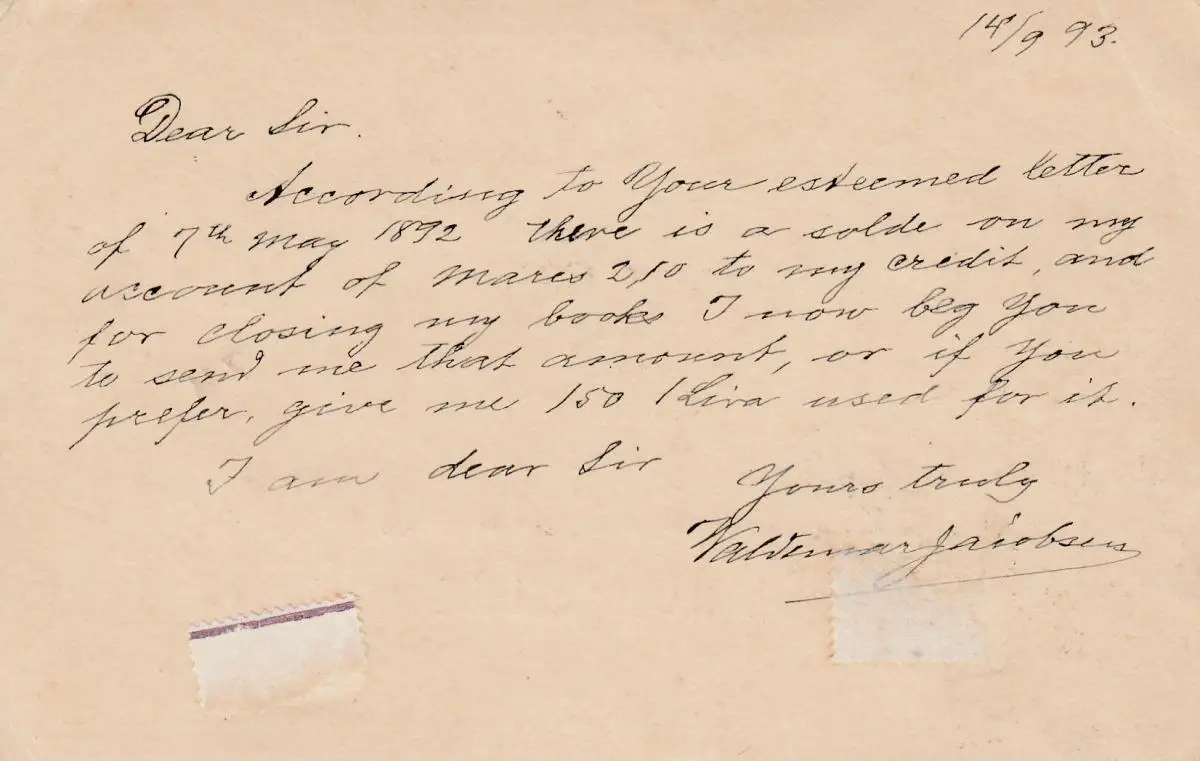 14/9 93.
Dear Sir.
According to Your esteemed letter
of 7th May 1892 there is a solde on my
account of Marcs 2,10 to my credit, and
for closing my books I now beg You
to send me that amount, or if You
prefer, give me 150 1 Lira used for it.
I am dear Sir
Yours truly
Waldemar Jacobsen